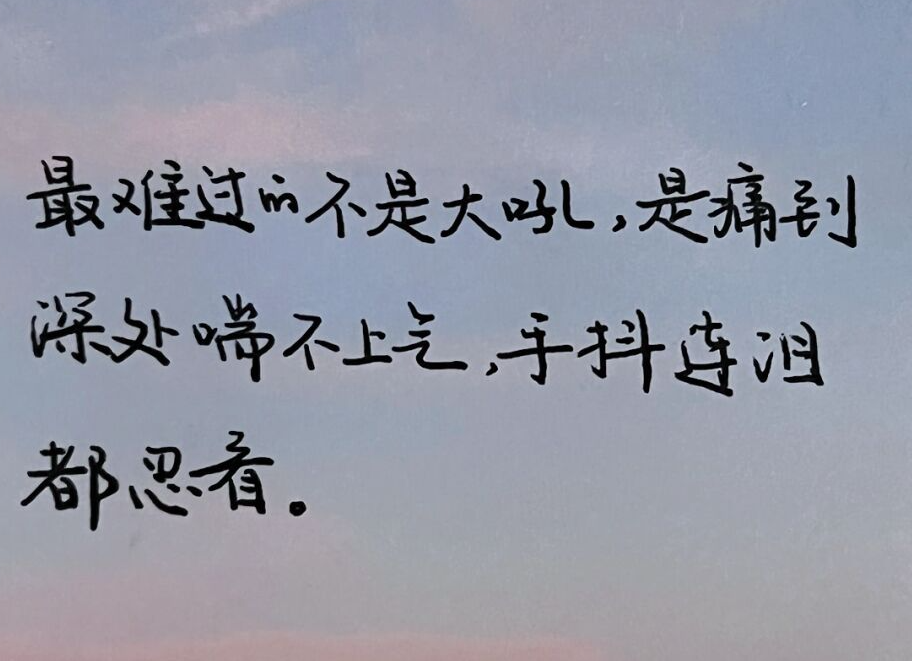 最难过的不是大吼,是痛到
深处喘不上气,手抖连泪
都忍着。